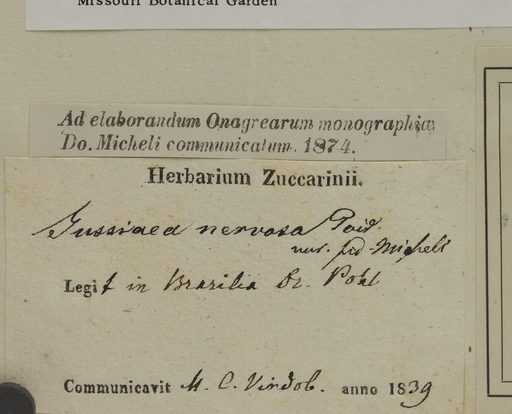 Missouri Botanical Garden
Ad elaborandum Onagrearum monographiam
Do. Micheli communicatum. 1874.
Herbarium Zuccarinii.
Jussiaea nervosa Poir.
fid. Micheli
Legit in Brasilia Dr. Pohl
Communicavit M. C. Vindob. anno 1839